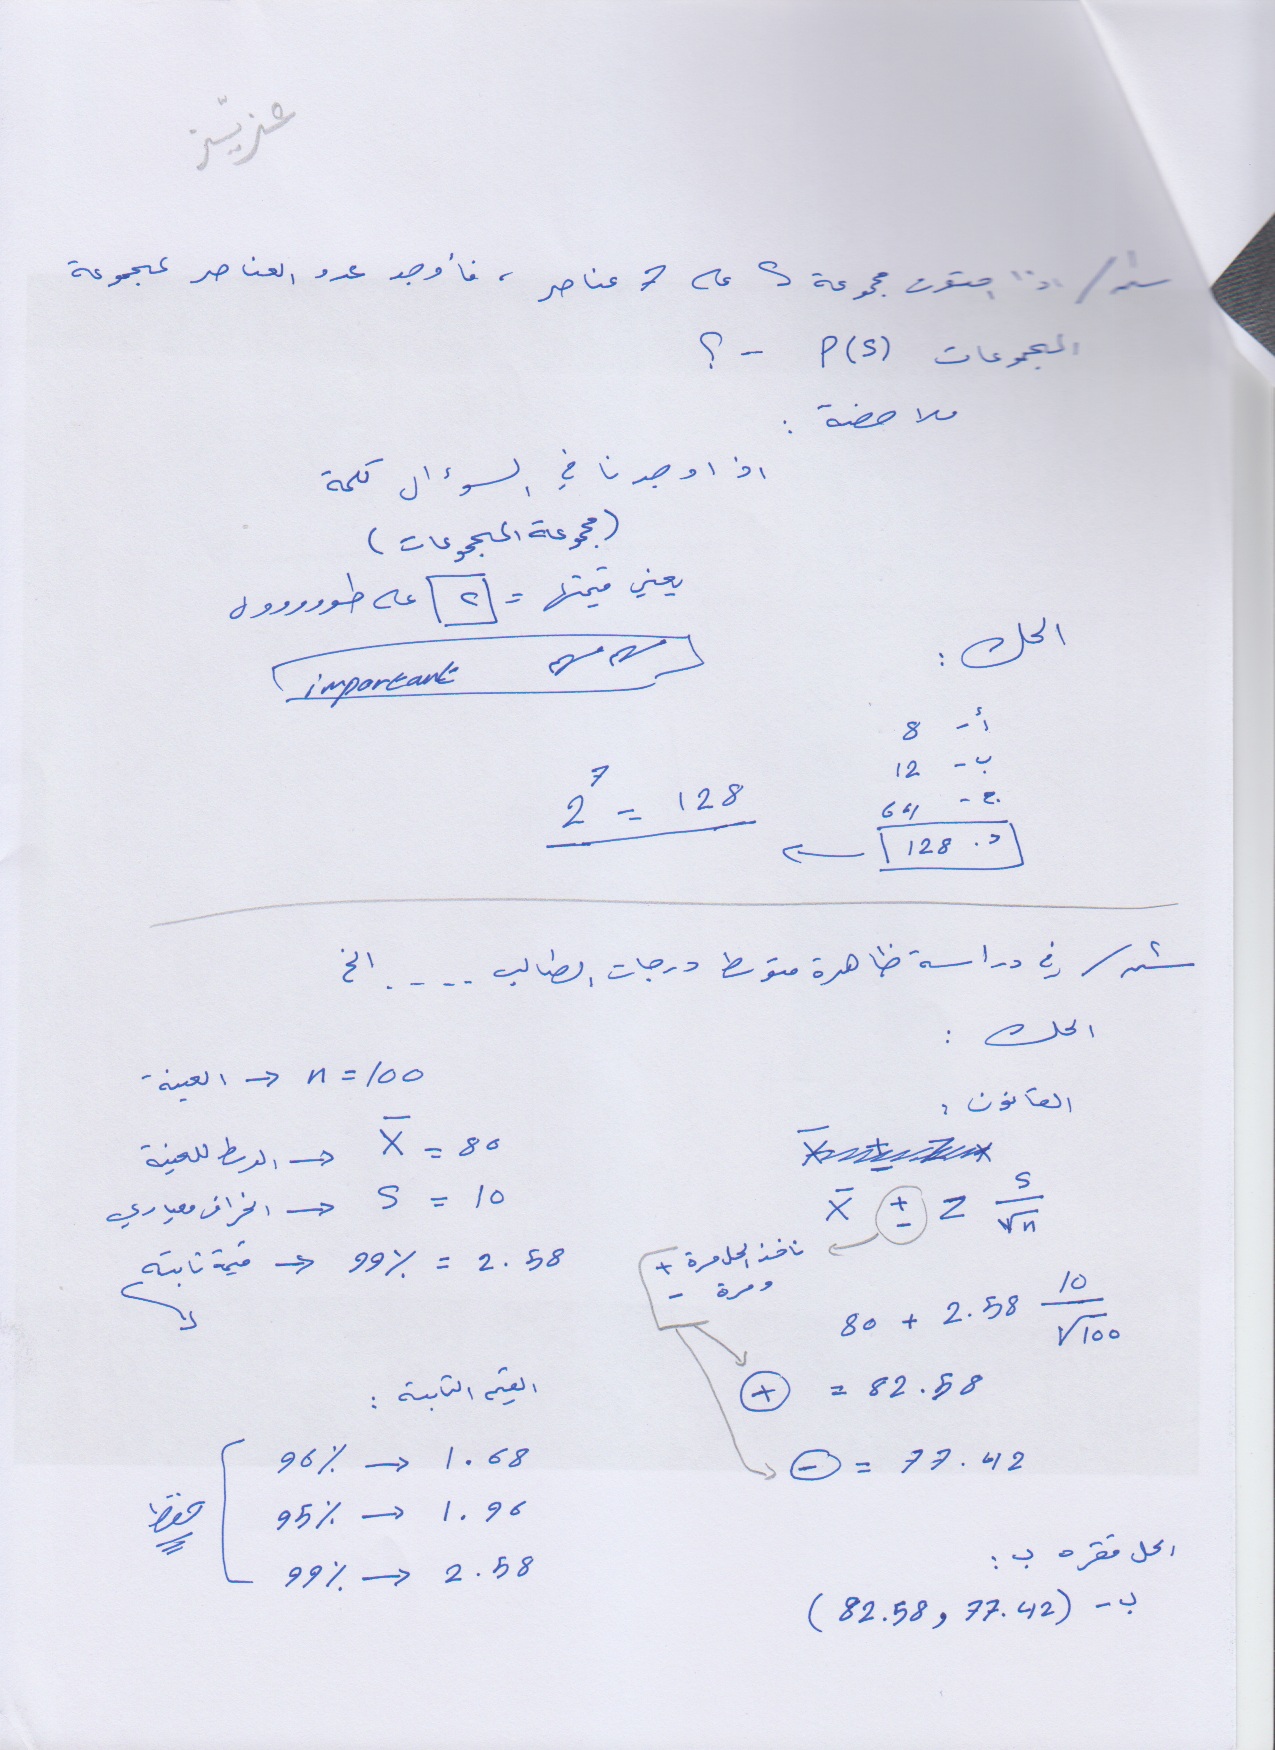 عزيّز
س/ اذا احتوت مجموعة S على 7 عناصر ، فأوجد عدد العناصر لمجموعة
المجموعات P(S) - ؟
ملاحضة :
اذا وجدنا في السوءال كلمة
(مجموعة المجموعات)
يعني قيمتها = 2 على طوووووول
important مهم مهم
الحل :
أ- 8
ب- 12
ج- 64
د. 128
2⁷ = 128
س/ في دراسة ظاهرة متوسط درجات الطالب ..... الخ
الحل :
القانون :
X̄ ± Z S/√n
ناخذ الحل مرة +
ومرة -
80 + 2.58 10/√100
+ = 82.58
- = 77.42
الحل فقره ب :
ب- (82.58 , 77.42)
n = 100 → العينة
X̄ = 80 → الوسط للعينة
S = 10 → انحراف معياري
99% = 2.58 → قيمة ثابته
القيم الثابتة :
96% → 1.68
95% → 1.96
99% → 2.58
حفظ